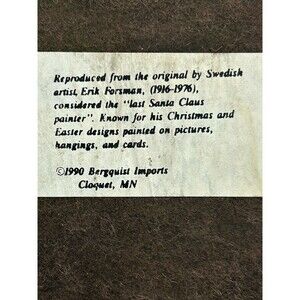 Reproduced from the original by Swedish
artist, Erik Forsman, (1916-1976),
considered the "last Santa Claus
painter". Known for his Christmas and
Easter designs painted on pictures,
hangings, and cards.
©1990 Bergquist Imports
Cloquet, MN